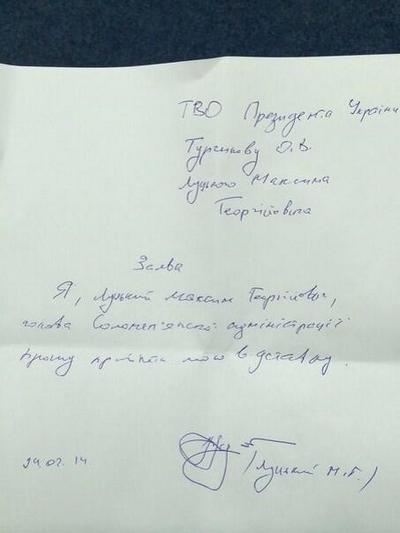 ТВО Президента України
Турчинову О.В.
Луцького Максима
Георгійовича
Заява
Я, Луцький Максим Георгійович,
голова Солом'янської адміністрації
прошу прийняти мою відставку.
24.02.14
(Луцький М.Г.)